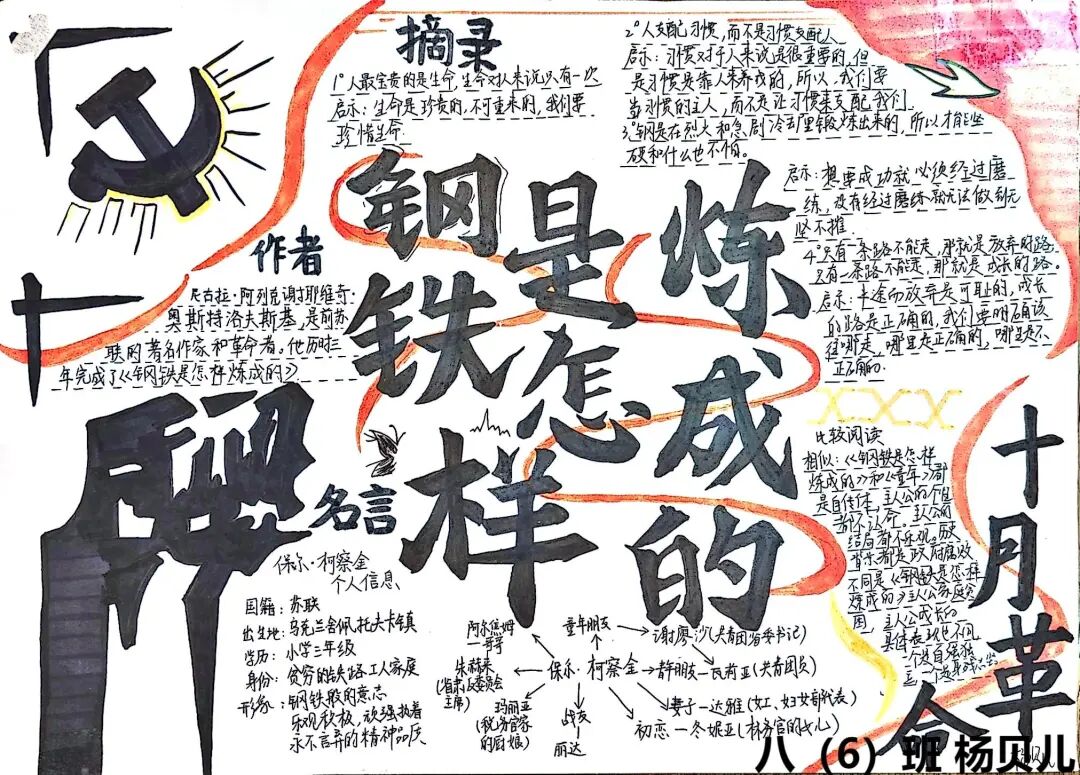 摘录
1°人最宝贵的是生命,生命对人来说只有一次
启示:生命是珍贵的,不可重来的,我们要
珍惜生命.
2°人支配习惯,而不是习惯支配人
启示:习惯对于人来说是很重要的,但
是习惯是靠人来养成的,所以,我们要
当习惯的主人,而不是让习惯来支配我们
3.°钢是在烈火和急剧冷却里锻炼出来的,所以才能坚
硬和什么也不怕。
启示:想要成功就必须经过磨
练,没有经过磨练就无法做到无
坚不摧.
4°只有一条路不能走,那就是放弃的路,
只有一条路不能,那就是成长的路。
启示:半途而放弃是可耻的,成长
的路是正确的,我们要明确该
往哪走,哪里是正确的,哪里是不
正确的.
钢铁是怎样炼成的
作者
尼古拉·阿列克谢耶维奇·
奥斯特洛夫斯基,是前苏
联的著名作家和革命者。他历时三
年完成了《钢铁是怎样炼成的》
名言
保尔·柯察金
个人信息
国籍:苏联
出生地:乌克兰舍佩托夫卡镇
学历:小学三年级
身份:贫穷的铁路工人家庭
形象:钢铁般的意志
乐观积极,顽强执着
永不言弃的精神品质
阿尔焦姆
一哥哥
童年朋友
谢廖沙(共青团省委书记)
朱赫来
主席)
保尔·柯察金
一瓦莉亚(共青团员)
玛丽亚
(税务官家
的厨娘)
战友
丽达
妻子一达雅(女工、妇女部代表)
初恋一冬妮亚(林务官的女儿)
比较阅读
相似:《钢铁是怎样
炼成的》和《童年》都
是自传体,主人公的个性
都不认命,主人公的
结局都不乐观。历史
背景都是政府腐败
不同是《钢铁是怎样
炼成的》主人公
主人公成长的
十月革命
八(6)班 杨贝儿